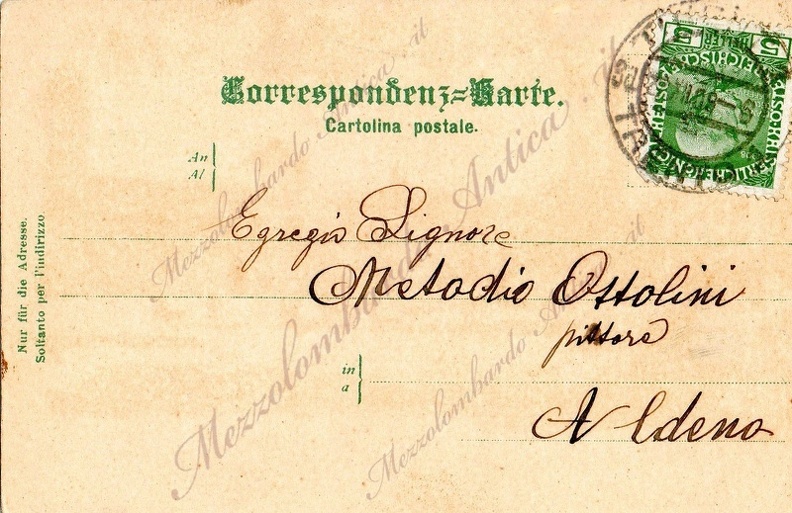 Correspondenz=Karte.
Cartolina postale.
5 HELLER 5
An
Al
Egregio Signore
Metodio Ottolini
pittore
in
a
Aldeno
Nur für die Adresse.
Soltanto per l'indirizzo.
Mezzolombardo Antica .it
Mezzolombardo Antica .it
Mezzolombardo Antica .it